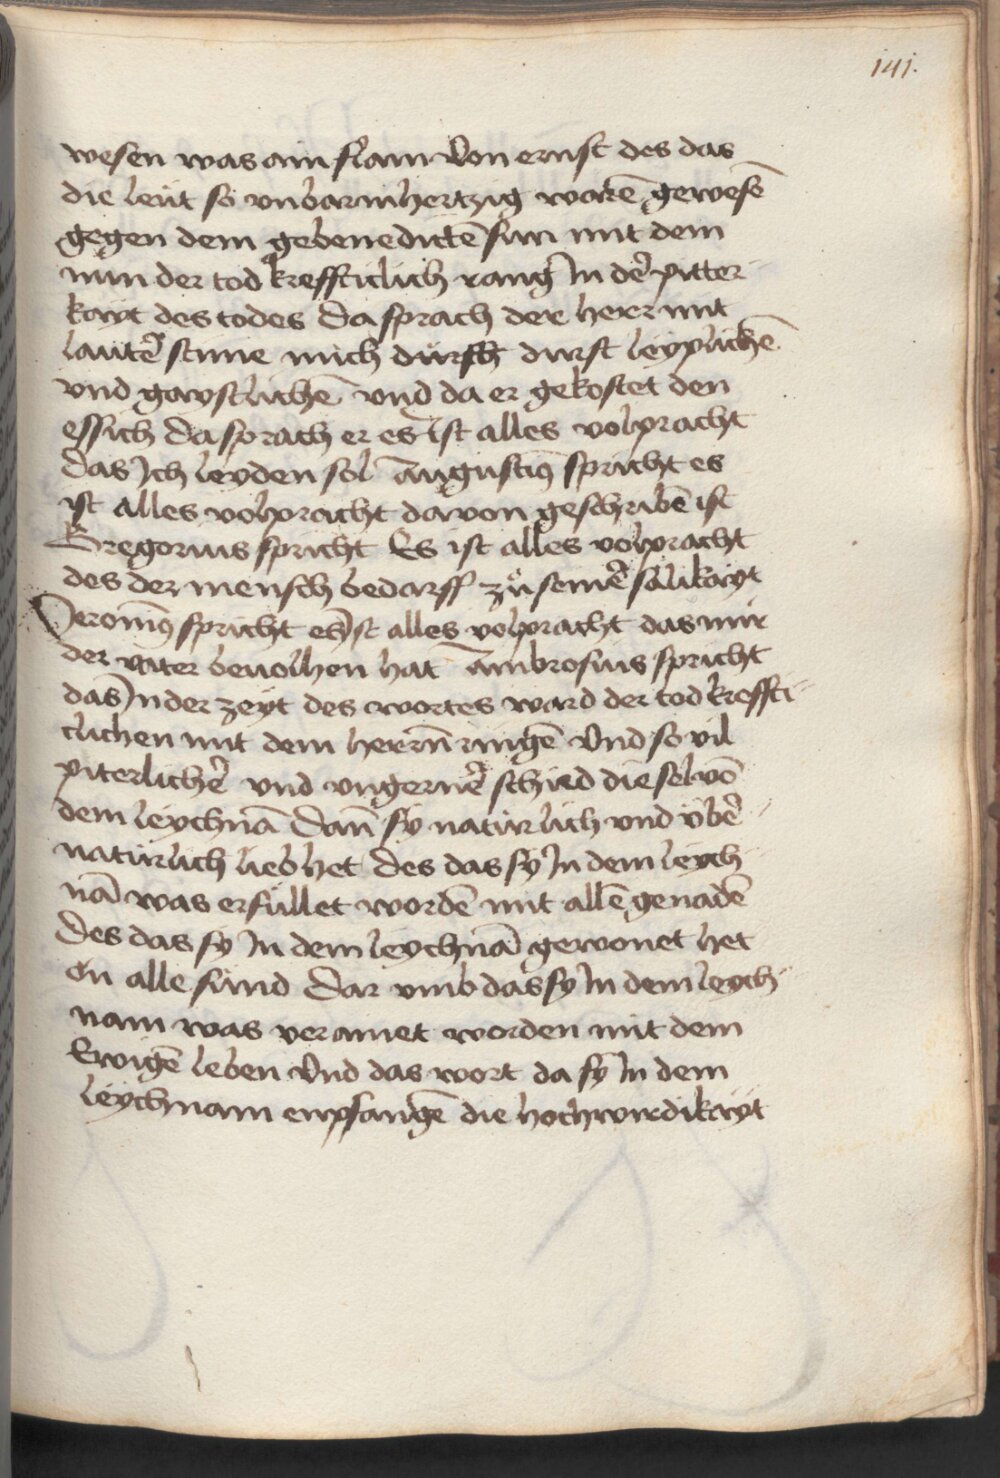 141.
wesen was ain flam Von ernst des das
die leüt so vnbarmhertzig warē gewesē
gegen dem gebenedictē sun mit dem
nun der tod kreffticlich rang In der̄ pitter
kayt des todes Da sprach der herr mit
lauter̄ stime mich dürsth durst leyplichē
vnd gaystlichē vnd da er gekostet den
essich Da sprach er es ist alles volpracht
das Ich leyden sol Augustin9 spricht es
ist alles volpracht davon geschribē ist
Gregorius spricht Es ist alles volpracht
des der mensch bedarff zů seiner̄ sälikayt
Jeronim9 spricht es Ist alles volpracht das mir
der vater beuolhen hat Ambrosius spricht
das In der zeyt des wortes ward der tod kreffti
clichen mit dem herrn̄ ringē Vnd so vil
piterlicher̄ vnd vngerner̄ schied die sel vō
dem leychnā Dan̄ sy natürlich vnd über̄
natürlich lieb het Des das sy In dem leych
nā was erfüllet wordē mit allē genadē
Des das sy In dem leychnā gewonet het
On alle sünd Dar vmb das sy In dem leych
nam was verainet worden mit dem
Ewigē leben Vnd das wort da sy In dem
leychnam enpfangē die hochwirdikayt